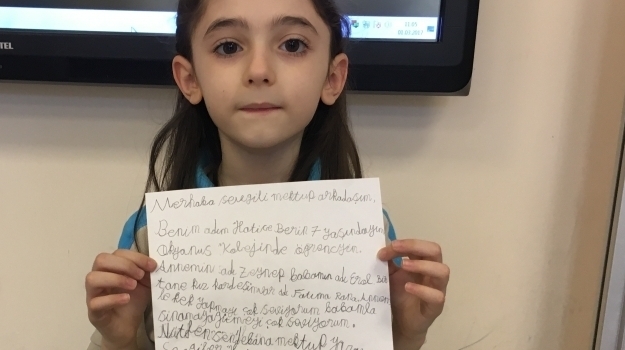 TEL
11:05
30.03.2017
Merhaba sevgili mektup arkadaşım,
Benim adım Hatice Berin 7 yaşındayım
Okyanus Kolejinde öğrenciyen.
Annemin adı Zeynep babamın adı Erol Bir
tane kız kardeşim var adı Fatıma Annem
le kek yapmayı çok seviyorum babamla
sinamaya gitmeyi çok seviyorum.
sende bana mektup